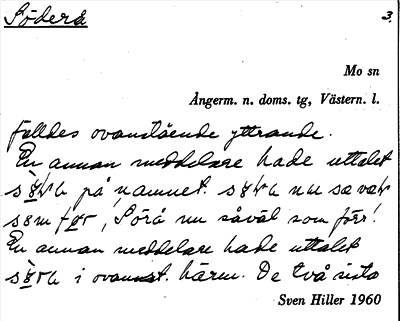 Söderå
3.
Mo sn
Ångerm. n. doms. tg, Västern. l.
fälldes ovanstående yttrande.
En annan meddelare hade uttalet
på namnet. nu sa var
som förr, Sörå nu såväl som förr!
En annan meddelare hade uttalet
i ovannst. härm. De två sista
Sven Hiller 1960